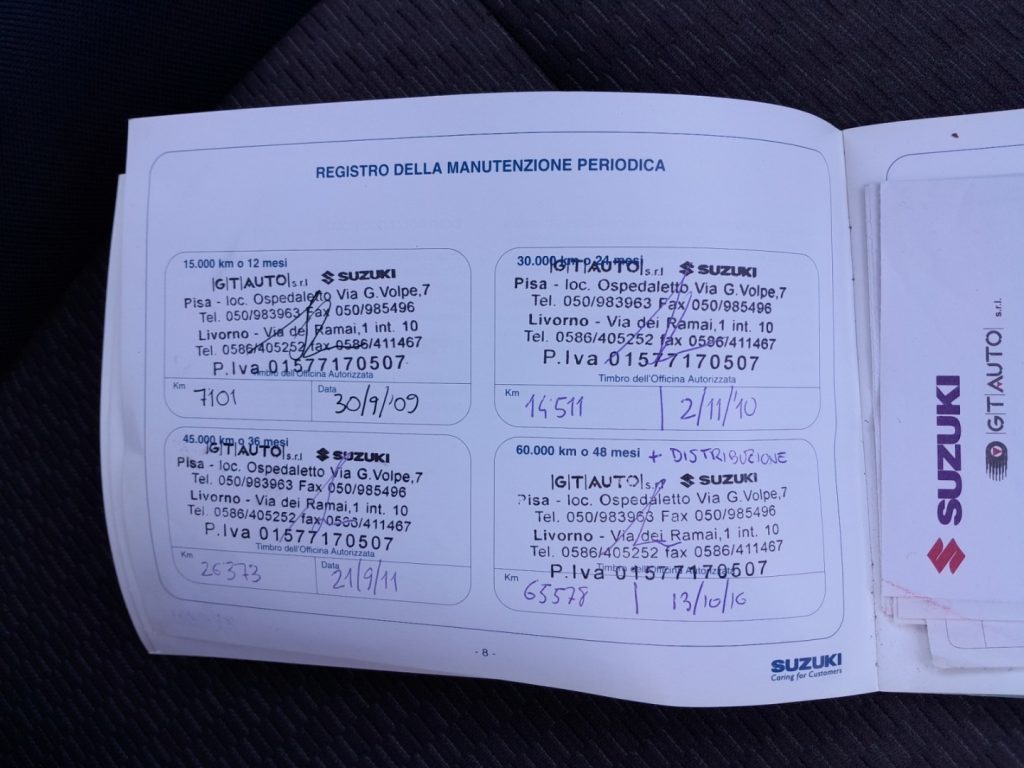 REGISTRO DELLA MANUTENZIONE PERIODICA
15.000 km o 12 mesi
|G|T|AUTO|s.r.l SUZUKI
Pisa - loc. Ospedaletto Via G.Volpe,7
Tel. 050/983963 Fax 050/985496
Livorno - Via dei Ramai,1 int. 10
Tel. 0586/405252 fax 0586/411467
P.Iva 01577170507
Timbro dell'Officina Autorizzata
Km 7101
Data 30/9/'09
30.000 km o 24 mesi
|G|T|AUTO|s.r.l SUZUKI
Pisa - loc. Ospedaletto Via G.Volpe,7
Tel. 050/983963 Fax 050/985496
Livorno - Via dei Ramai,1 int. 10
Tel. 0586/405252 fax 0586/411467
P.Iva 01577170507
Timbro dell'Officina Autorizzata
Km 14511
2/11/'10
45.000 km o 36 mesi
|G|T|AUTO|s.r.l SUZUKI
Pisa - loc. Ospedaletto Via G.Volpe,7
Tel. 050/983963 Fax 050/985496
Livorno - Via dei Ramai,1 int. 10
Tel. 0586/405252 fax 0586/411467
P.Iva 01577170507
Timbro dell'Officina Autorizzata
Km 26373
Data 21/9/11
60.000 km o 48 mesi + DISTRIBUZIONE
|G|T|AUTO|s.r.l SUZUKI
Pisa - loc. Ospedaletto Via G.Volpe,7
Tel. 050/983963 Fax 050/985496
Livorno - Via dei Ramai,1 int. 10
Tel. 0586/405252 fax 0586/411467
P.Iva 01577170507
Timbro dell'Officina Autorizzata
Km 65578
13/10/16
- 8 -
SUZUKI
Caring for Customers
SUZUKI
|G|T|AUTO| s.r.l.